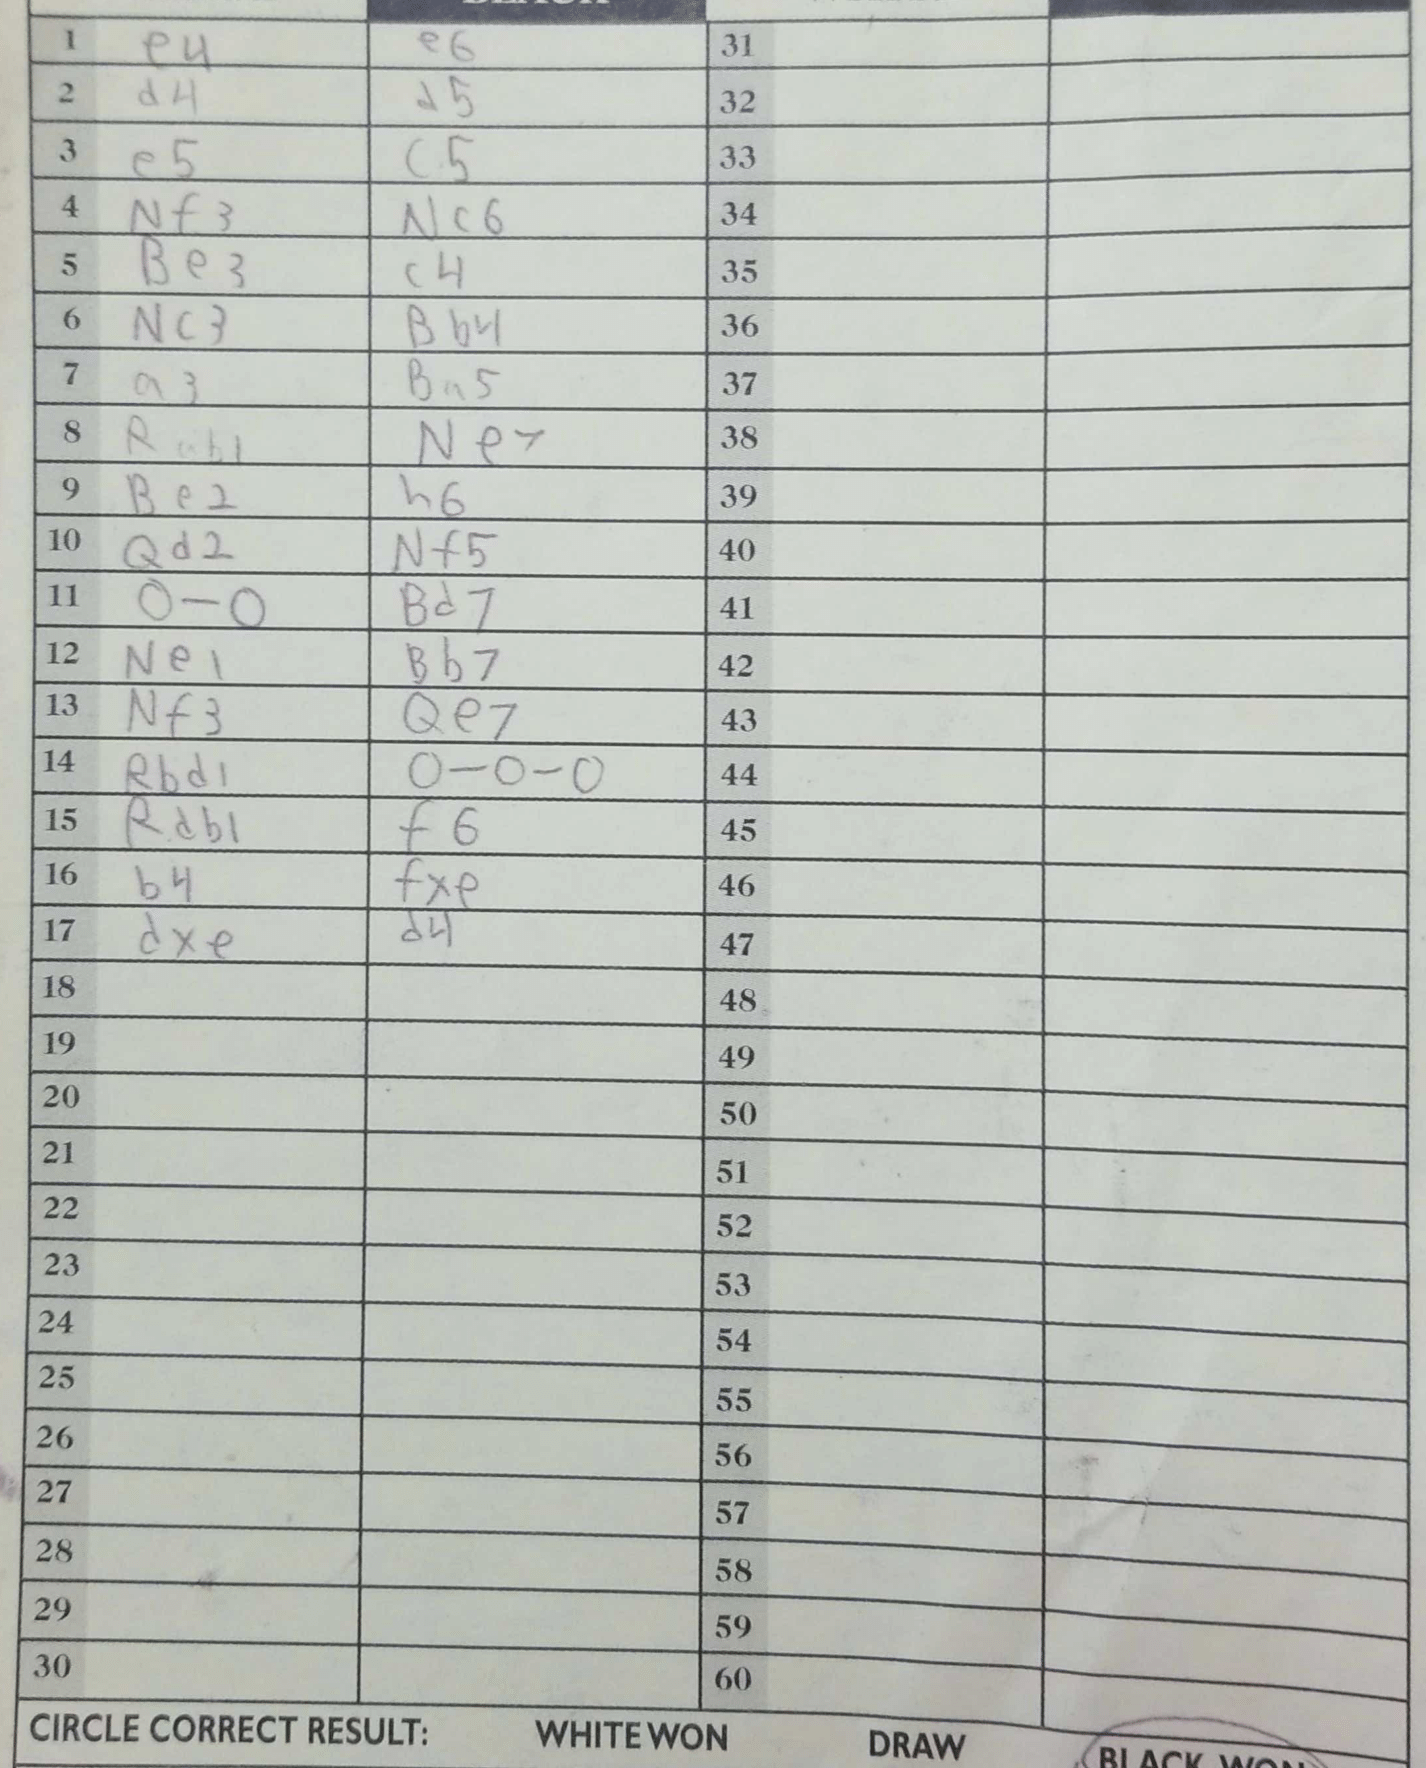 BLACK
1 e4 e6 31
2 d4 d5 32
3 e5 c5 33
4 Nf3 Nc6 34
5 Be3 c4 35
6 Nc3 Bb4 36
7 a3 Ba5 37
8 Rab1 Ne7 38
9 Be2 h6 39
10 Qd2 Nf5 40
11 O-O Bd7 41
12 Ne1 Bb7 42
13 Nf3 Qe7 43
14 Rbd1 O-O-O 44
15 Rdb1 f6 45
16 b4 fxe 46
17 dxe d4 47
18 48
19 49
20 50
21 51
22 52
23 53
24 54
25 55
26 56
27 57
28 58
29 59
30 60
CIRCLE CORRECT RESULT: WHITE WON DRAW BLACK WON